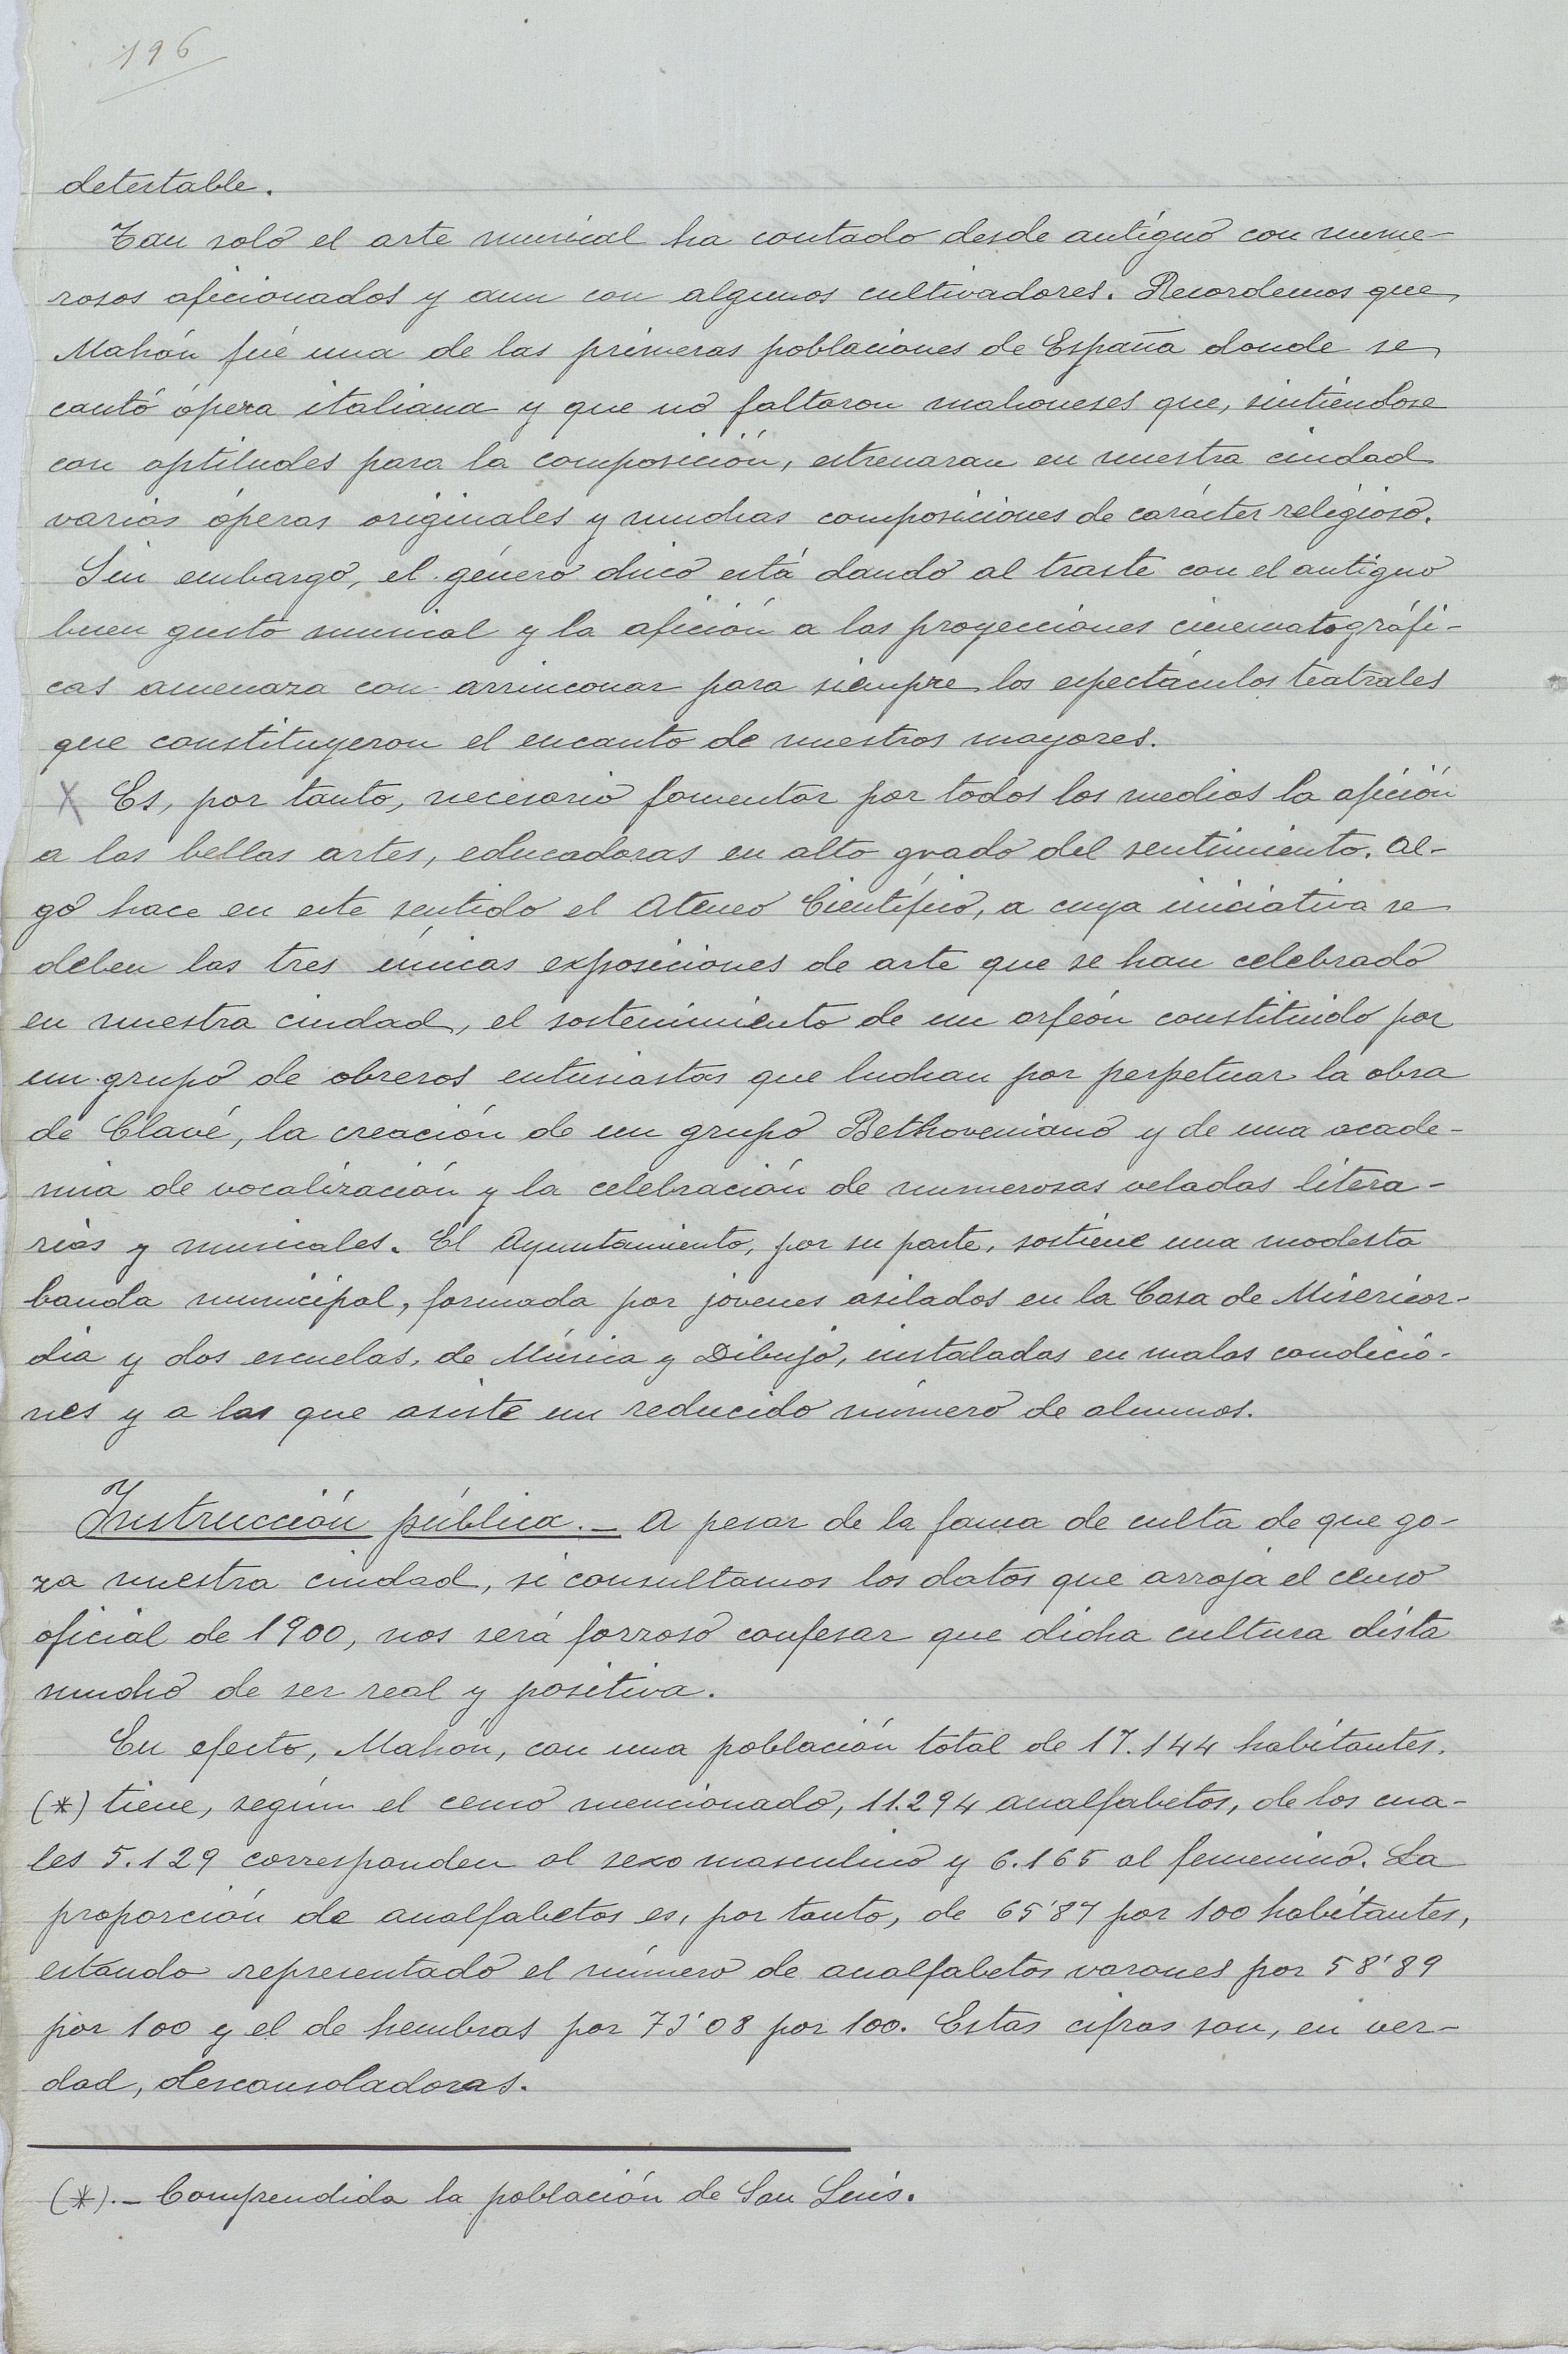 196
detestable.
Tan solo el arte musical ha contado desde antiguo con nume-
rosos aficionados y aun con algunos cultivadores. Recordemos que
Mahón fué una de las primeras poblaciones de España donde se
cantó ópera italiana y que no faltaron mahoneses que, sintiéndose
con aptitudes para la composición, estrenaran en nuestra ciudad
varias óperas originales y muchas composiciones de carácter religioso.
Sin embargo, el género chico está dando al traste con el antiguo
buen gusto musical y la afición a las proyecciones cinematográfi-
cas amenaza con arrinconar para siempre los espectáculos teatrales
que constituyeron el encanto de nuestros mayores.
X Es, por tanto, necesario fomentar por todos los medios la afición
a las bellas artes, educadoras en alto grado del sentimiento. Al-
go hace en este sentido el Ateneo Científico, a cuya iniciativa se
deben las tres únicas exposiciones de arte que se han celebrado
en nuestra ciudad, el sostenimiento de un orfeón constituido por
un grupo de obreros entusiastas que luchan por perpetuar la obra
de Clavé, la creación de un grupo Bethoveniano y de una acade-
mia de vocalización y la celebración de numerosas veladas litera-
rias y musicales. El Ayuntamiento, por su parte, sostiene una modesta
banda municipal, formada por jóvenes asilados en la Casa de Misericor-
dia y dos escuelas, de Música y Dibujo, instaladas en malas condicio-
nes y a las que asiste un reducido número de alumnos.
Instrucción pública.- A pesar de la fama de culta de que go-
za nuestra ciudad, si consultamos los datos que arroja el censo
oficial de 1900, nos será forzoso confesar que dicha cultura dista
mucho de ser real y positiva.
En efecto, Mahón, con una población total de 17.144 habitantes.
(*) tiene, según el censo mencionado, 11.294 analfabetos, de los cua-
les 5.129 corresponden al sexo masculino y 6.165 al femenino. La
proporción de analfabetos es, por tanto, de 65'87 por 100 habitantes,
estando representado el número de analfabetos varones por 58'89
por 100 y el de hembras por 73'08 por 100. Estas cifras son, en ver-
dad, desconsoladoras.
(*).- Comprendida la población de San Luis.